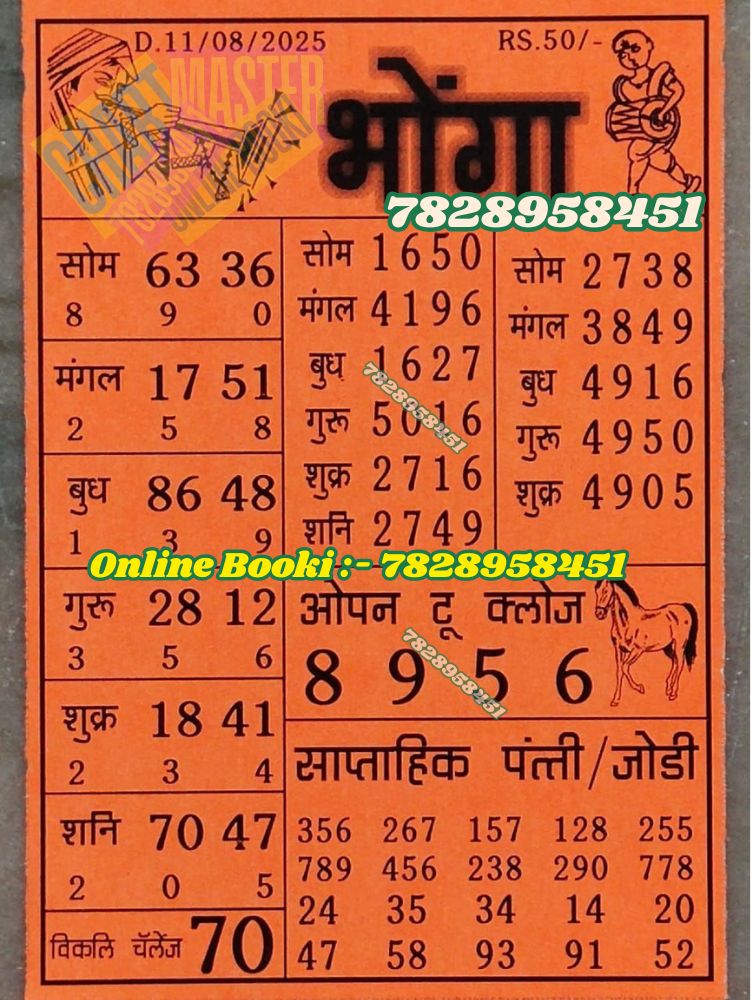 D.11/08/2025
RS.50/-
CHART MASTER
7828958451
भोंगा
7828958451
सोम 63 36
8 9 0
मंगल 17 51
2 5 8
बुध 86 48
1 3 9
गुरू 28 12
3 5 6
शुक्र 18 41
2 3 4
शनि 70 47
2 0 5
विकलि चॅलेंज 70
सोम 1650
मंगल 4196
बुध 1627
गुरू 5016
शुक्र 2716
शनि 2749
7828958451
सोम 2738
मंगल 3849
बुध 4916
गुरू 4950
शुक्र 4905
Online Booki :- 7828958451
ओपन टू क्लोज
8 9 5 6
7828958451
साप्ताहिक पंत्ती/जोडी
356 267 157 128 255
789 456 238 290 778
24 35 34 14 20
47 58 93 91 52